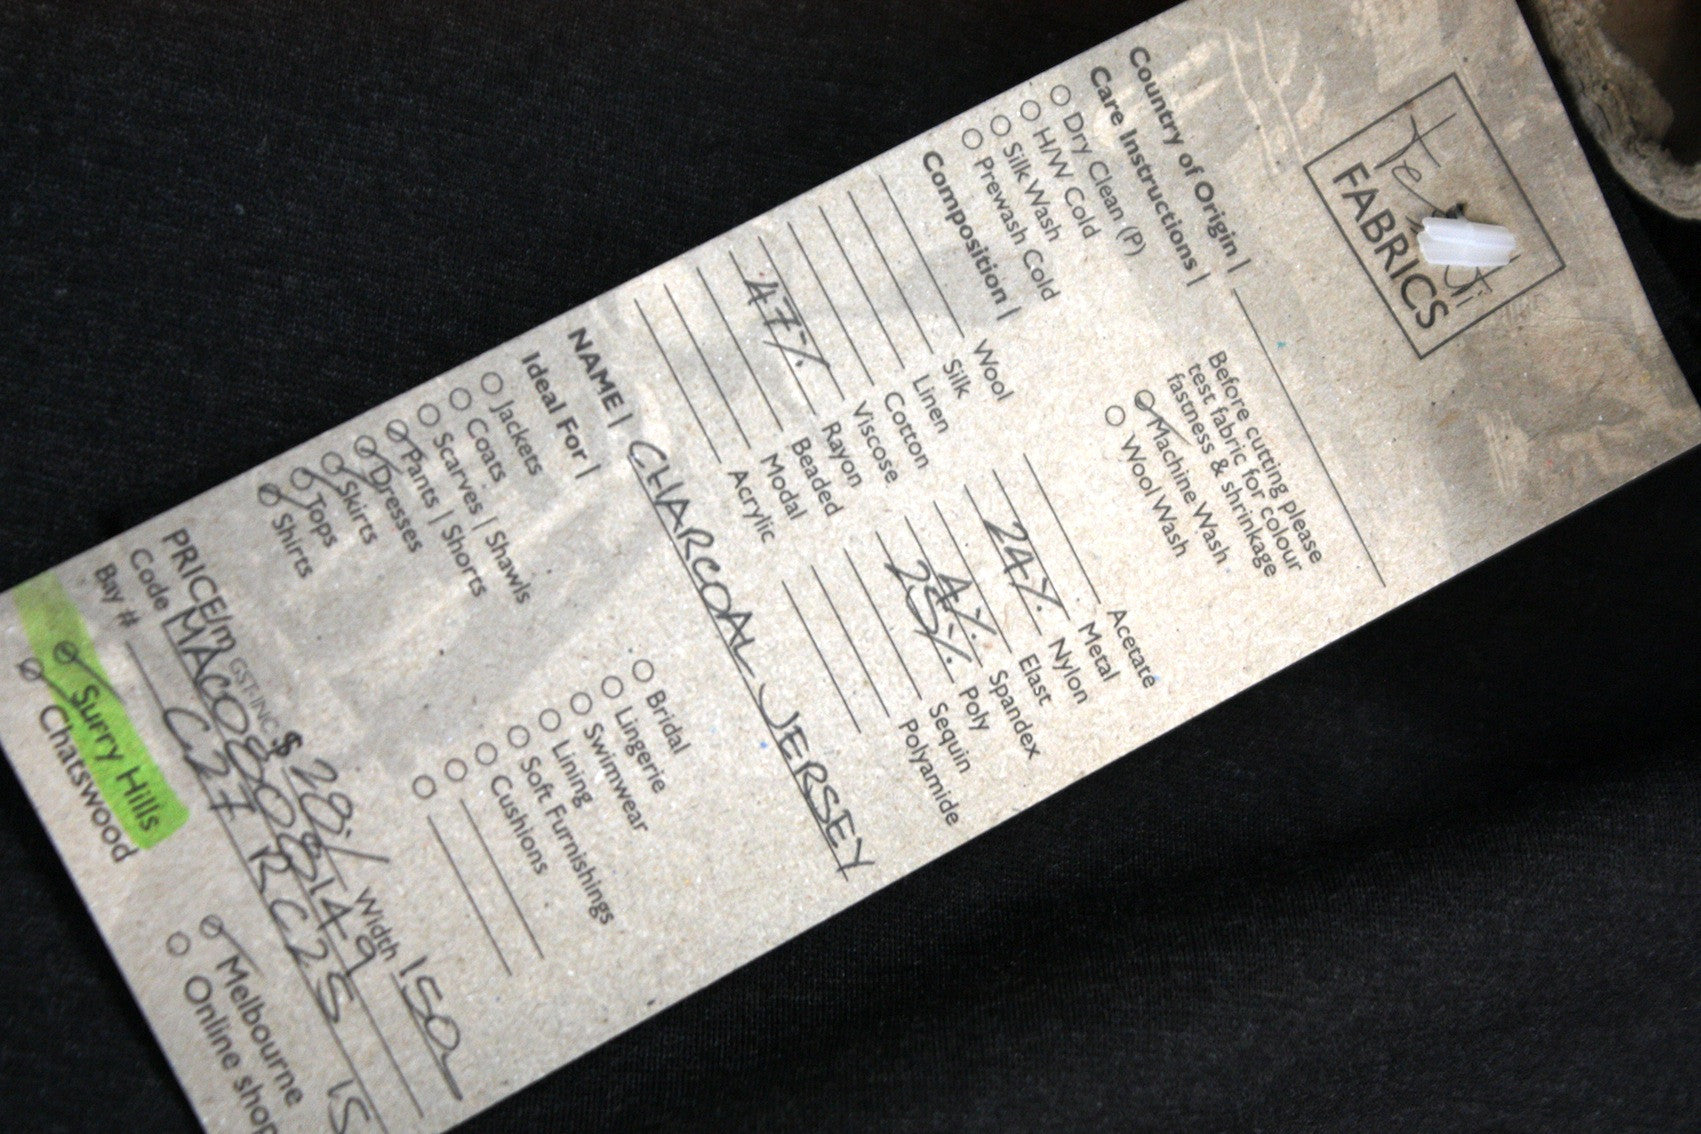 FABRICS
Country of Origin |
Care Instructions |
Before cutting please
test fabric for colour
fastness & shrinkage
Dry Clean (P)
H/W Cold
Silk Wash
Prewash Cold
Machine Wash
Wool Wash
Composition |
Wool
Silk
Linen
Cotton
Viscose
47% Rayon
Beaded
Modal
Acrylic
Acetate
Metal
24% Nylon
Elast
4% Spandex
25% Poly
Sequin
Polyamide
NAME | CHARCOAL JERSEY
Ideal For |
Jackets
Coats
Scarves | Shawls
Pants | Shorts
Dresses
Skirts
Tops
Shirts
Bridal
Lingerie
Swimwear
Lining
Soft Furnishings
Cushions
PRICE/m GST-INC $ 28.- Width 150
Code MAC0808149
Bay # C27 RC25 15
Surry Hills Melbourne
Chatswood Online shop